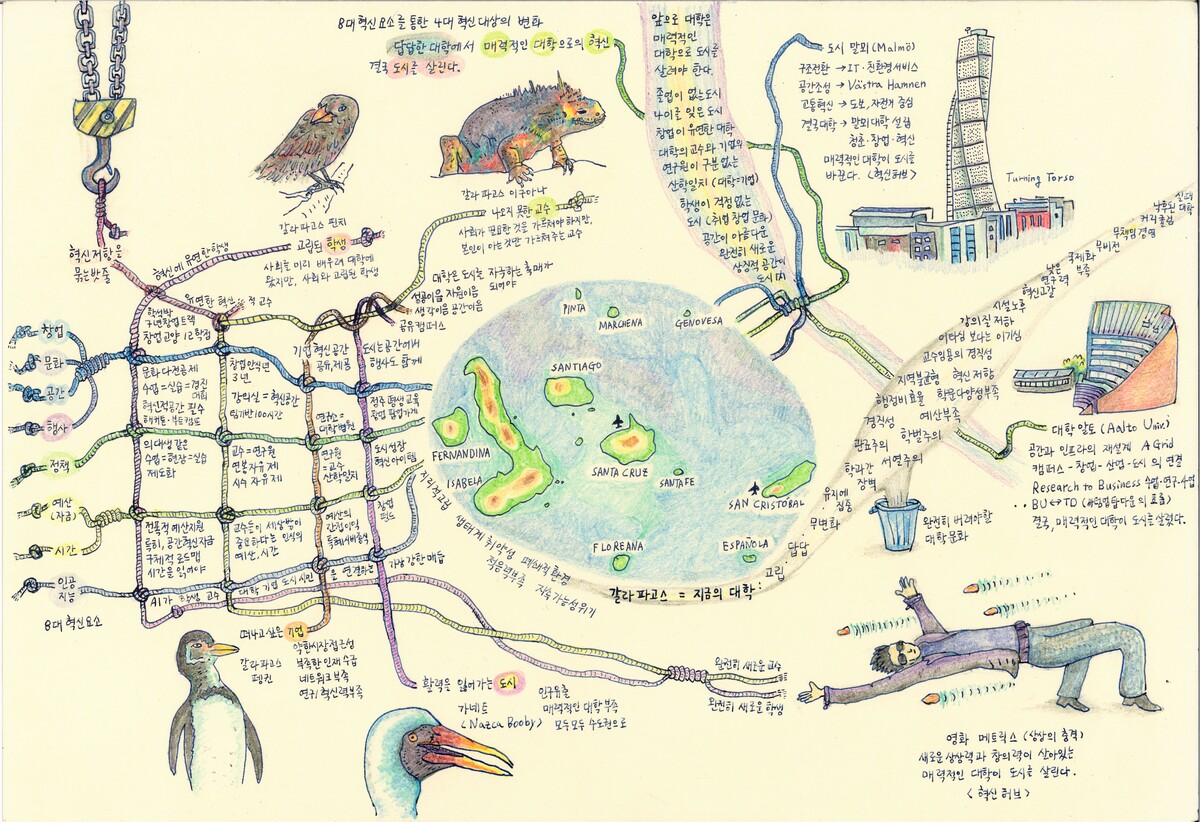 8대 혁신요소를 통한 4대 혁신대상의 변화
답답한 대학에서 매력적인 대학으로의 혁신
결국 도시를 살린다.
앞으로 대학은
매력적인
대학으로 도시를
살려야 한다.
졸업이 없는 도시
나이를 잊은 도시
창업이 유연한 대학
대학의 교수와 기업의
연구원이 구분 없는
산학일치 (대학=기업)
학생이 걱정없는
도시 (취업 창업 문화)
공간이 아름다운
완전히 새로운
상징적 공간이
도시에
도시 말뫼 (Malmö)
구조전환 → IT·친환경서비스
공간조성 → Västra Hamnen
교통혁신 → 도보, 자전거 중심
결국대학 → 말뫼대학 설립
청춘·창업·혁신
매력적인 대학이 도시를
바꾼다. <혁신허브>
Turning Torso
갈라파고스 핀치
고립된 학생
사회를 미리 배우려 대학에
왔지만, 사회와 고립된 학생
갈라파고스 이구아나
나오지 못한 교수
사회가 필요한 것을 가르쳐야 하지만,
본인이 아는것만 가르쳐주는 교수
대학은 도시는 자극하는 촉매가
되어야
성공이음 자원이음
생각이음 공간이음
공유캠퍼스
혁신저항을
묶는밧줄
혁신에 유연한 학생
유연한 혁신적 교수
창업
문화
공간
행사
정책
예산
(자금)
시간
인공
지능
8대 혁신요소
창업교양 12학점
문화다전공제
수업=실습=경진
대회
혁신적공간 필수
의대생 같은
수업=현장=실습
제도화
전폭적 예산지원
특히, 공간혁신자금
구체적 로드맵
시간을 읽어야
창업안식년
3년,
강의실=혁신공간
교수=연구원
연봉자유제
시수 자유제
교수들이 세상밖이
중요하다는 인식의
예산, 시간
기업혁신공간
공유, 제공
연구원
=교수
산학일치
예산의
도시는공간에서
행사도 함께
정주 평생교육
도시성장
혁신아이템
창업
펀드
AI가
교수
대학 기업 도시 시민
을 연결하는
가장 강한 매듭
PINTA
MARCHENA
GENOVESA
SANTIAGO
FERNANDINA
ISABELA
SANTA CRUZ
SANTA FE
SAN CRISTÓBAL
FLOREANA
ESPAÑOLA
지리적고립
생태계 취약성
폐쇄적 환경
적응력부족
지속가능성위기
갈라파고스 = 지금의 대학
고립
답답
무변화
유지에
집중
학과간
장벽
관료주의
서열주의
경직성
학벌주의
행정비효율
예산부족
지역불균형
혁신저항
학문다양성부족
교수임용의 경직성
이타심 보다는 이기심
강의질 저하
시설노후
혁신고갈
낮은
연구력
국제화
부족
무비전
무책임경영
낙후된
커리큘럼
완전히 버려야할
대학문화
대학 알토 (Aalto Univ)
공간과 인프라의 재설계 A Grid
캠퍼스-창업-산업-도시의 연결
Research to Business 수업·연구·사업
BU↔TD (바텀업탑다운의 조율)
결국, 매력적인 대학이 도시를 살렸다.
갈라파고스
펭귄
떠나고싶은 기업
약한시장접근성
부족한 인재수급
네트워크 부족
연구혁신력부족
활력을 잃어가는 도시
가네트
(Nazca Booby)
인구유출
매력적인 대학부족
모두모두 수도권으로
완전히 새로운 교수
완전히 새로운 학생
영화 메트릭스 (상상의 충격)
새로운 상상력과 창의력이 살아있는
매력적인 대학이 도시를 살린다.
<혁신허브>